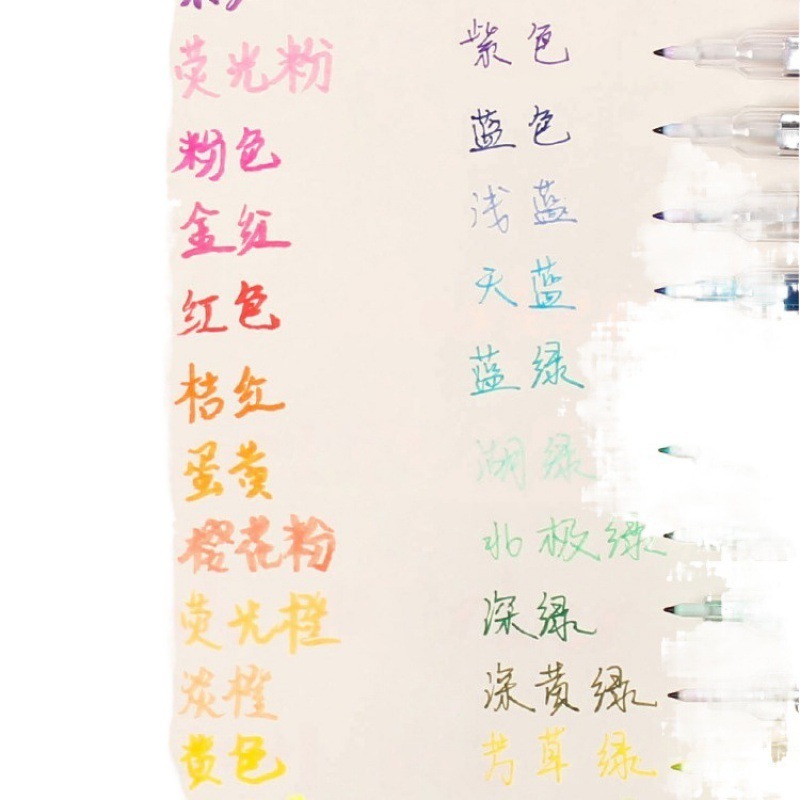 荧光粉
粉色
金红
红色
桔红
蛋黄
橙花粉
荧光橙
淡橙
黄色
紫色
蓝色
浅蓝
天蓝
蓝绿
湖绿
北极绿
深绿
深黄绿
芳草绿